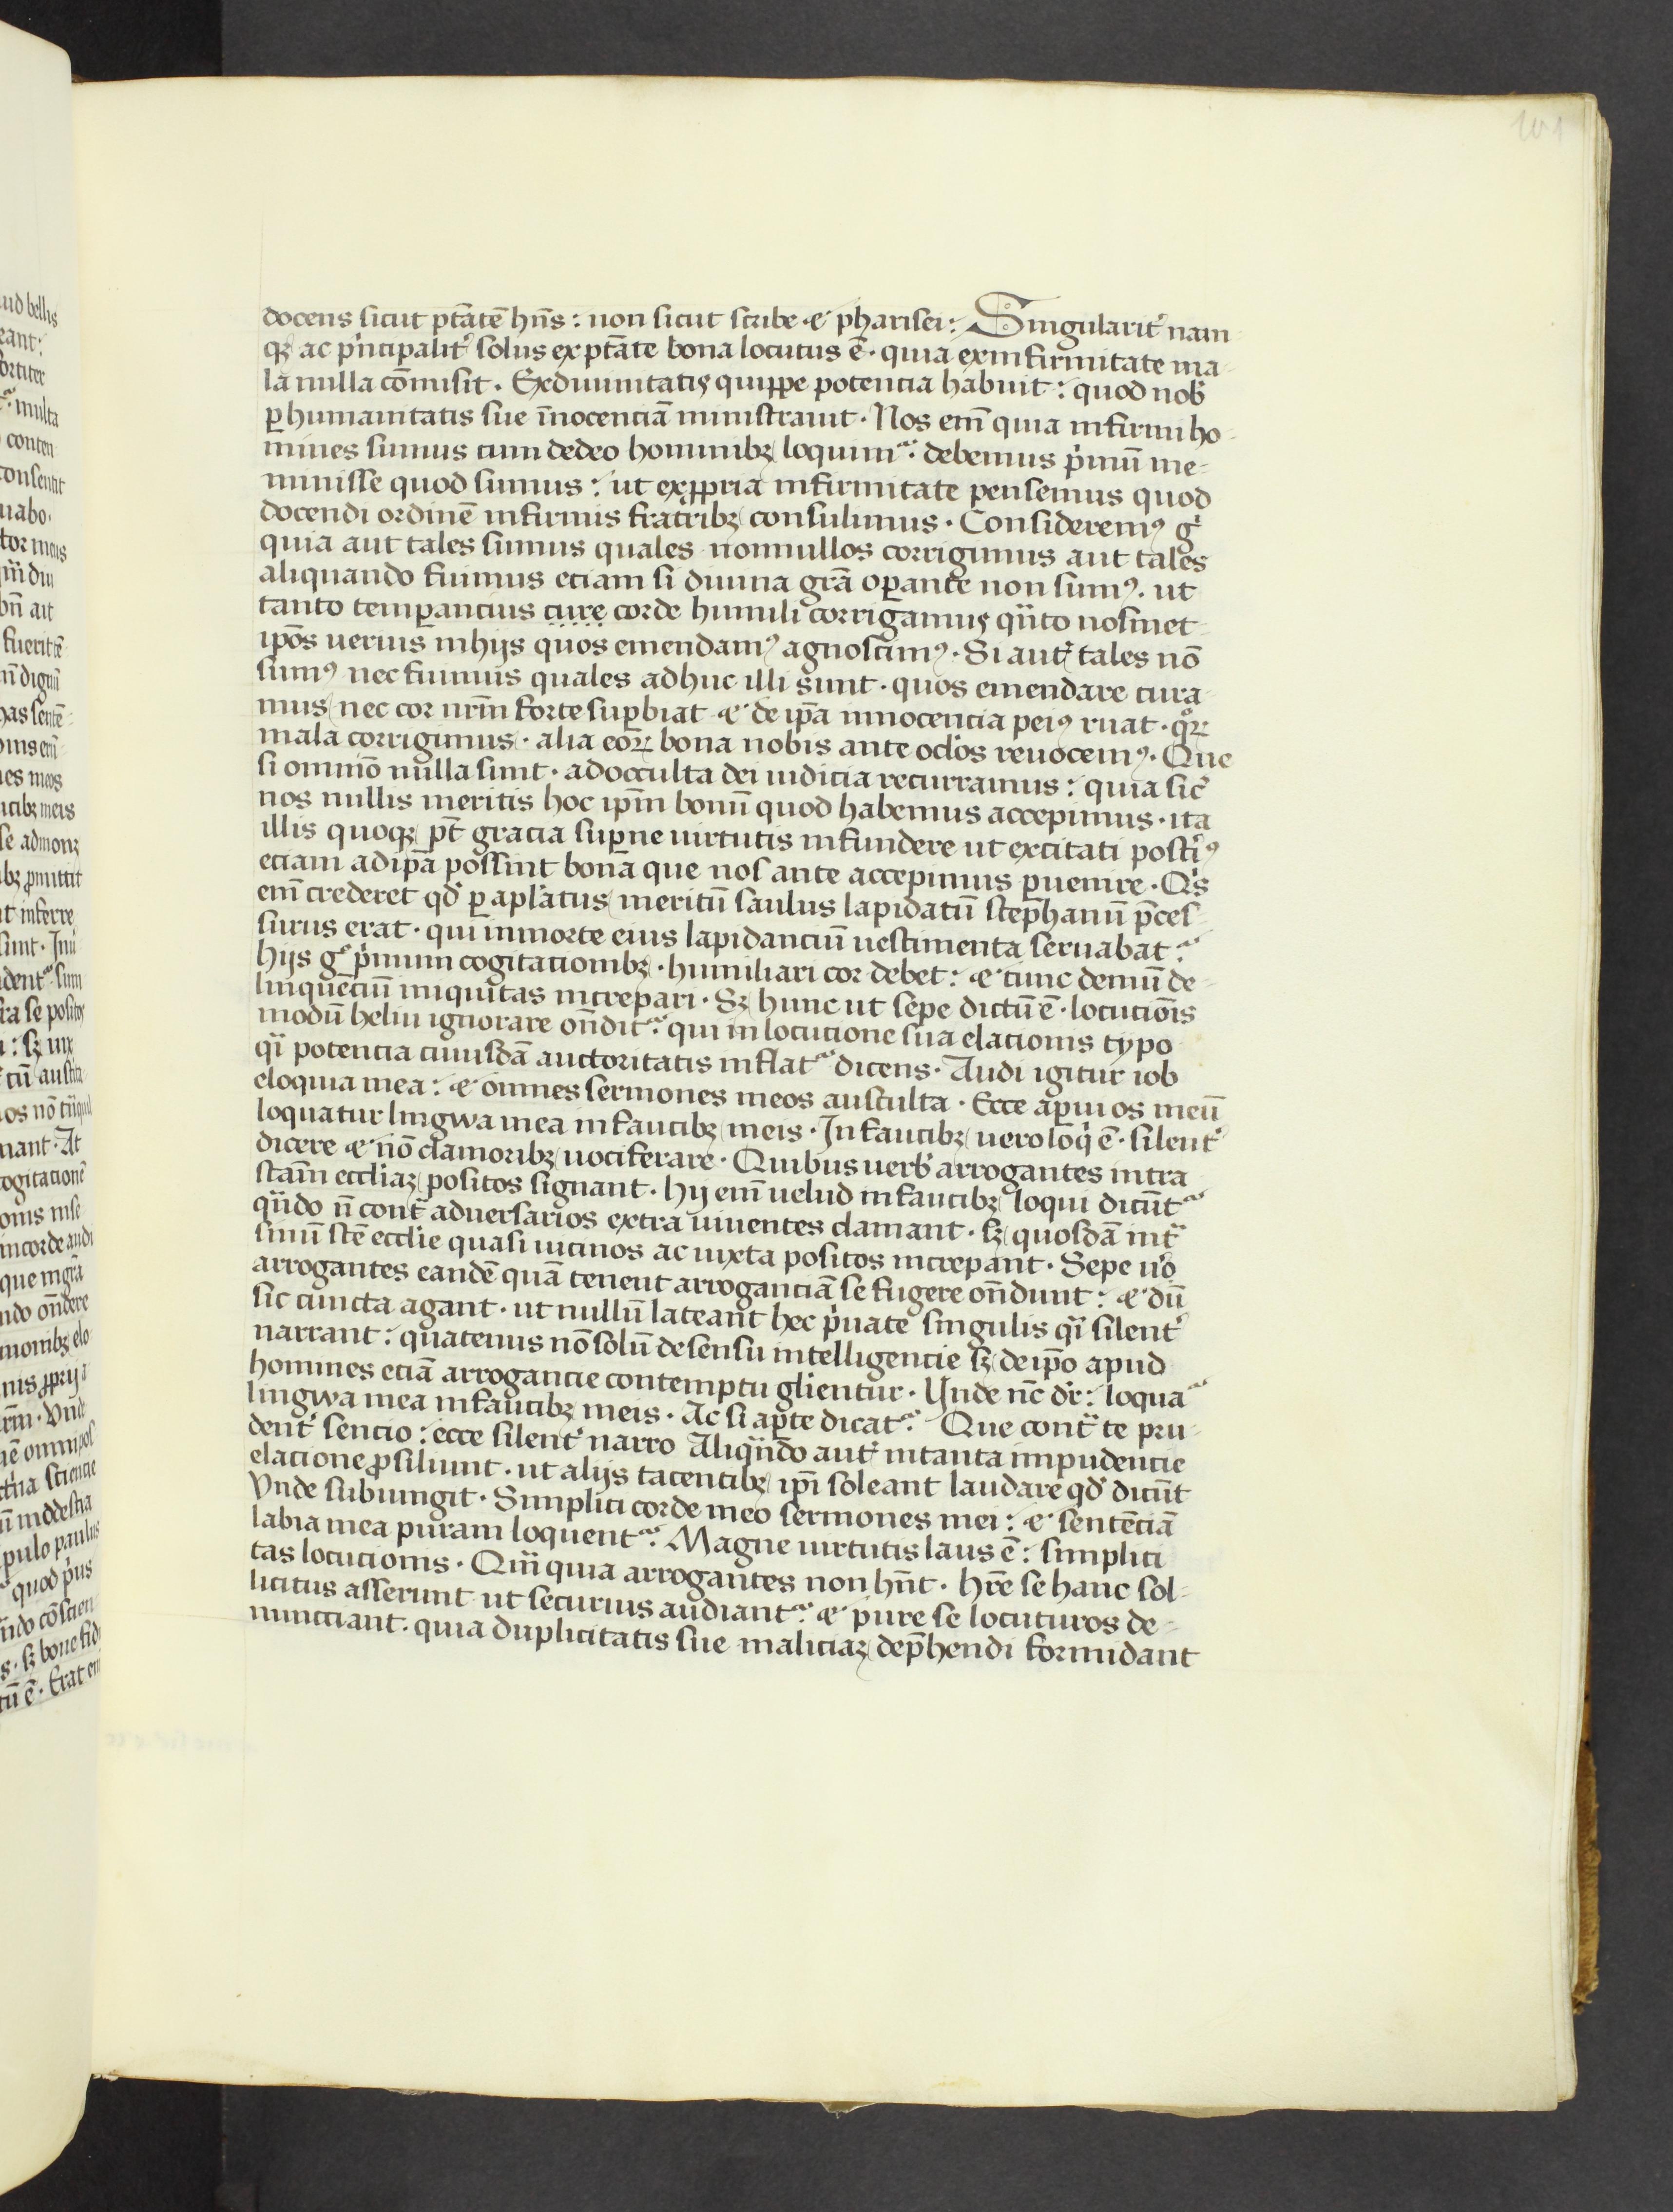 101
docens sicut ptātē hn̄s : non sicut scribe ⁊ pharisei : Singularit᷑ nam
qꝫ ac pⁱncipalit᷑ solus ex ptāte bona locutus ē · quia ex infirmitate ma
la nulla cōmisit · Ex diuinitatis quippe potencia habuit : quod nob᷑
ꝑ humanitatis sue īnocenciā ministrauit · Nos em̄ quia infirmi ho
mines sumus cum de deo hominibꝫ loquim᷑ : debemus pⁱmū me
minisse quod sumus : ut ex ꝓpria infirmitate pensemus quod
docendi ordinē infirmis fratribꝫ consulimus · Consideremꝰ gͦ
quia aut tales sumus quales nonnullos corrigimus aut tales
aliquando fuimus eciam si diuina grā oꝑante non sumꝰ · ut
tanto temꝑancius cure corde humili corrigamus qᵃ̄to nosmet
ip̄os uerius in hijs quos emendamꝰ agnoscimꝰ · Si aut᷑ tales nō
sumꝰ nec fuimus quales adhuc illi sunt · quos emendare cura
mus nec cor nr̄m forte suꝑbiat ⁊ de ip̄a innocencia peiꝰ ruat · qͦꝝ
mala corrigimus · alia eoꝝ bona nobis ante oclōs reuocemꝰ · Que
si omnīo nulla sunt · ad occulta dei iudicia recurramus : quia sic᷑
nos nullis meritis hoc ip̄m bonū quod habemus accepimus · ita
illis quoqꝫ pt̄ gracia suꝑne uirtutis infundere ut excitati postiꝰ
eciam ad ip̄a possint bona que nos ante accepimus ꝑuenire · Qⁱs
em̄ crederet qd᷑ ꝑ apl̄atus meritū saulus lapidatū stephanū p̄ces
surus erat · qui in morte eius lapidanciū uestimenta seruabat :
hijs gͦ pⁱmum cogitacionibꝫ · humiliari cor debet : ⁊ tunc demū de
linquēciū iniquitas increpari · Sꝫ hunc ut sepe dictū ē · locucōnis
modū heliu ignorare on̄dit᷑ : qui in locucione sua elacionis typo
qᵃi potencia cuiusdā auctoritatis inflat᷑ dicens · Audi igitur iob
eloquia mea : ⁊ omnes sermones meos ausculta · Ecce aꝑui os meū
loquatur lingwa mea in faucibꝫ meis · In faucibꝫ uero loqⁱ ē · silent᷑
dicere ⁊ nō clamoribꝫ uociferare · Quibus uerb᷑ arrogantes intra
stam̄ eccliaꝫ positos signant · hij em̄ uelud in faucibꝫ loqui dicūt᷑
qᵃ̄do n̄ contᵃ aduersarios extra uiuentes clamant · sꝫ quosdā intᵃ
sinū stē ecclīe quasi uicinos ac iuxta positos increpant · Sepe uͦo
arrogantes eandē quā tenent arroganciā se fugere on̄dunt : ⁊ dū
sic cuncta agant · ut nullū lateant hec pⁱuate singulis qᵃi silent᷑
narrant : quatenus nō solū de sensu intelligencie sꝫ de ip̄o apud
homines eciā arrogancie contemptu glīentur · Unde nc̄ dr᷑ : loqua᷑
lingwa mea in faucibꝫ meis · Ac si aꝑte dicat᷑ : Que contᵃ te pru
dent᷑ sencio : ecce silent᷑ narro Aliqᵃ̄do aut᷑ in tanta impudencie
elacione ꝓsiliunt · ut alijs tacentibꝫ ip̄i soleant laudare qd᷑ dicūt
Vnde subiungit · Simplici corde meo sermones mei : ⁊ sentēciā
labia mea puram loquent᷑ : Magne uirtutis laus ē : simplici
tas locucionis · Qm̄ quia arrogantes non hn̄t · hr̄e se hanc sol
licitus asserunt ut securius audiant᷑ : ⁊ pure se locuturos de
nuncciant · quia duplicitatis sue maliciaꝫ dep̄hendi formidant